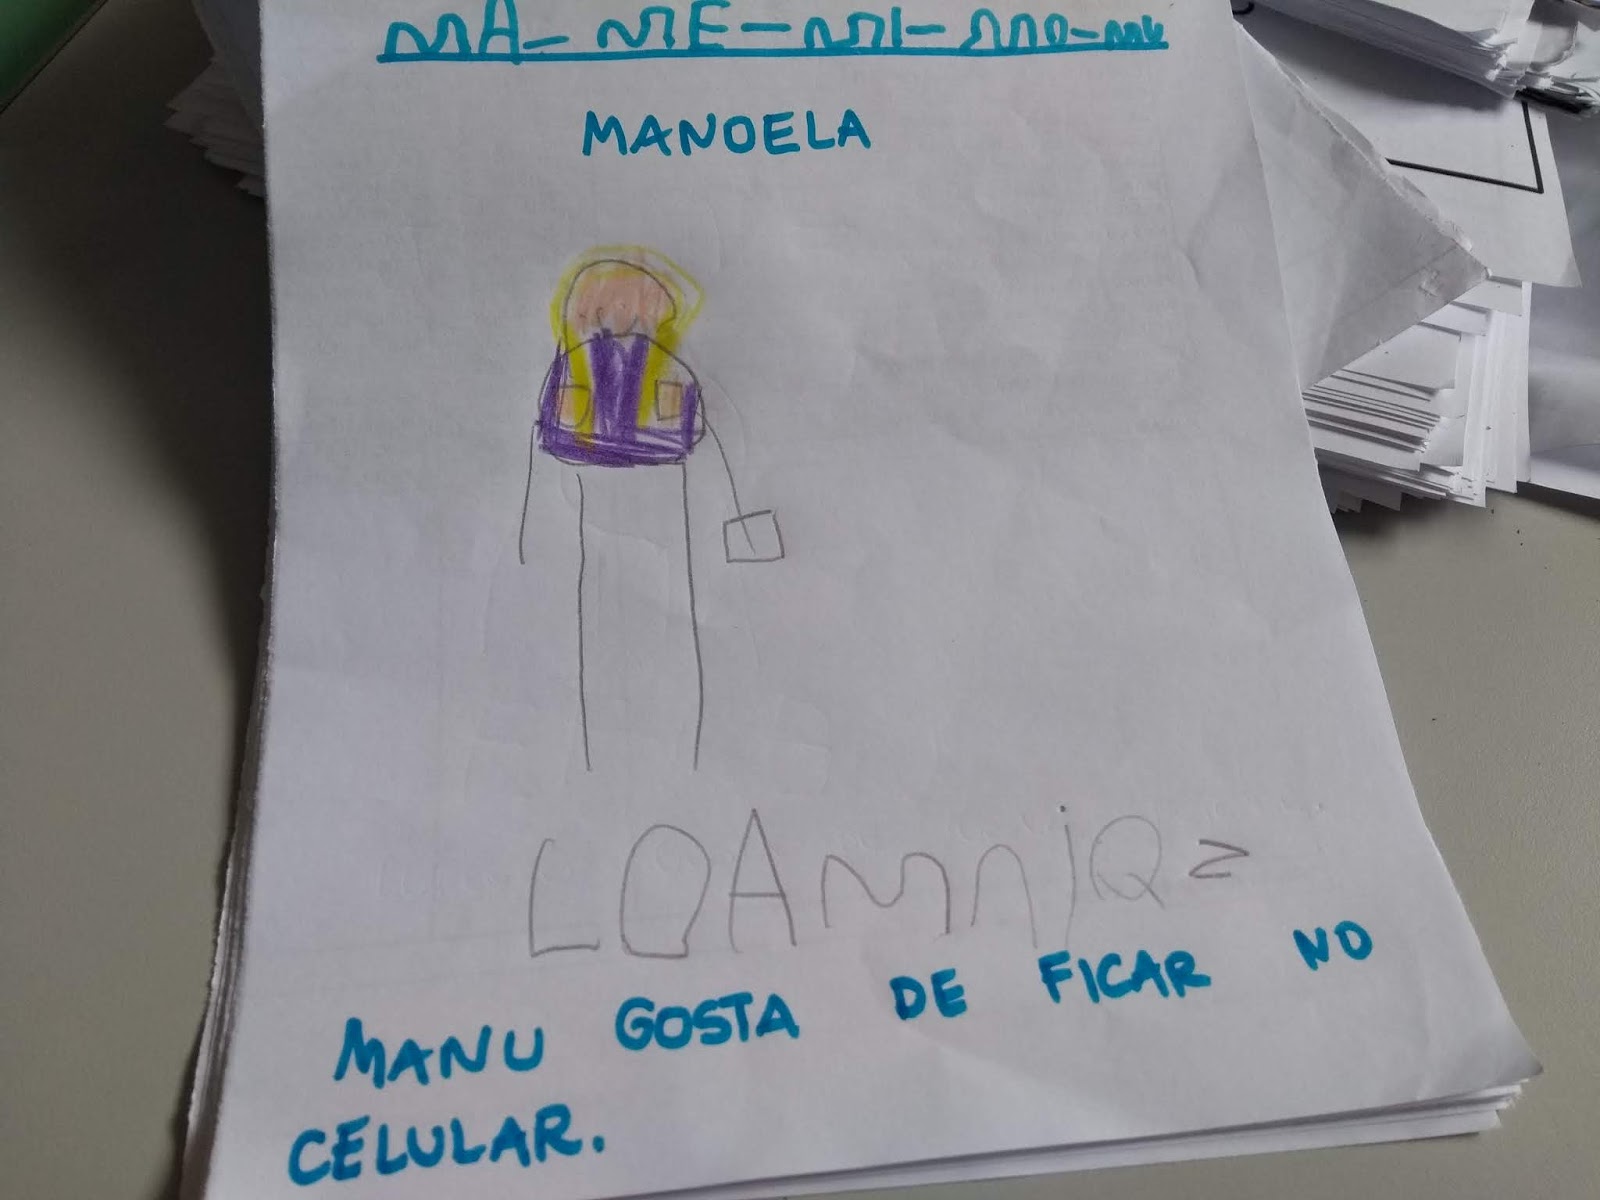 MA - ME - MI - MO - MU
MANOELA
LOAMNiQ
MANU GOSTA DE FICAR NO
CELULAR.